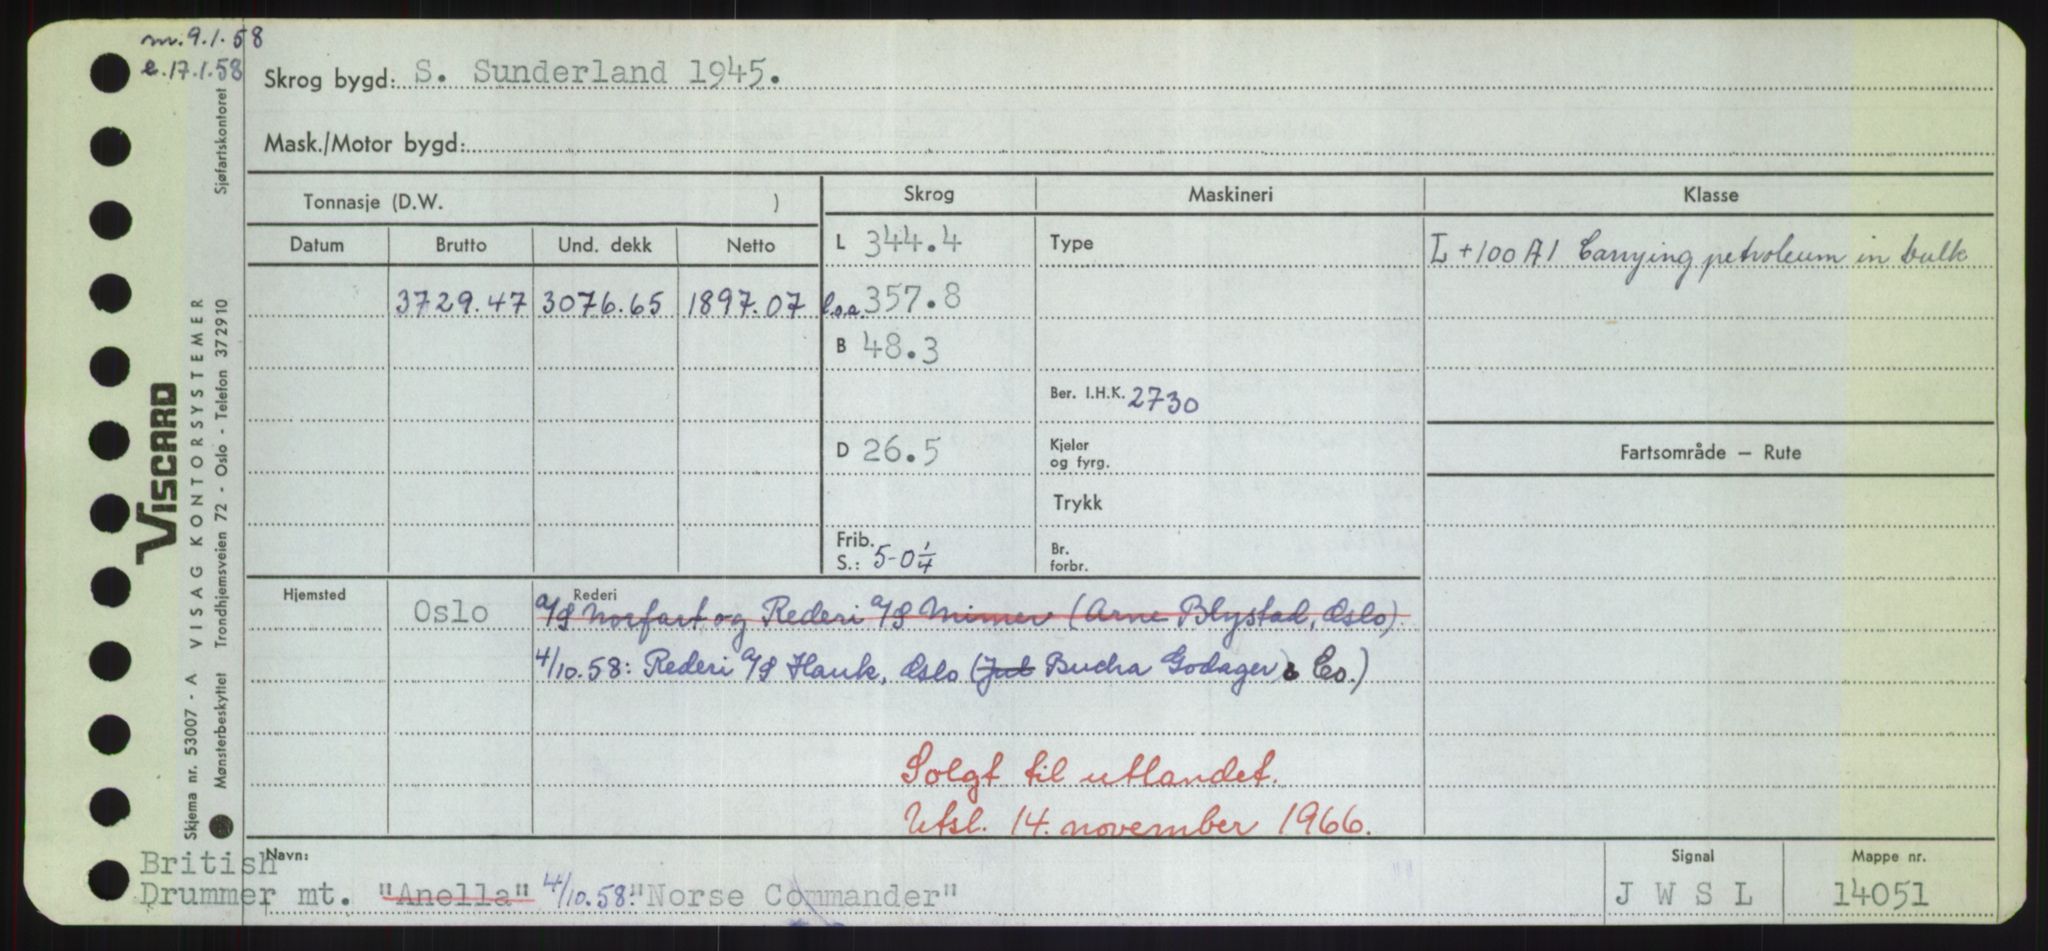 m. 9.1.58
e. 17.1.58
Skrog bygd: S. Sunderland 1945.
Mask./Motor bygd:
Tonnasje (D.W. )
Skrog
Maskineri
Klasse
Datum
Brutto
Und. dekk
Netto
L 344.4
Type
L +100 A1 Carrying petroleum in bulk
3729.47
3076.65
1897.07
l.o.a. 357.8
B 48.3
Ber. I.H.K. 2730
D 26.5
Kjeler
og fyrg.
Fartsområde — Rute
Trykk
Frib.
S.: 5-0 1/4
Br.
forbr.
Hjemsted
Oslo
Rederi
A/S Norfart og Rederi A/S Mimer (Arne Blystad, Oslo).
4/10.58: Rederi A/S Hauk, Oslo (Jul Bucha Godager & Co.)
Solgt til utlandet.
Utsl. 14. november 1966.
British
Drummer mt.
Navn:
"Anella" 4/10.58: "Norse Commander"
Signal
J W S L
Mappe nr.
14051
VISCARD
VISAG KONTORSYSTEMER
Skjema nr. 53007 - A
Mønsterbeskyttet Trondhjemsveien 72 - Oslo - Telefon 372910
Sjøfartskontoret